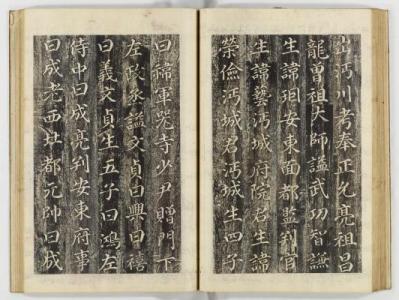 出沔川考奉正允亮祖昌
龍曾祖大師諡武功智謙
生諱珇安東面都監判官
生諱藝沔城府院君生諱
榮儉沔城君沔城生四子
曰禘軍器寺少尹贈門下
左政丞諡文貞曰興曰禧
曰義文貞生五子曰鴻左
侍中曰成亮判安東府事
曰成老西北都元帥曰成